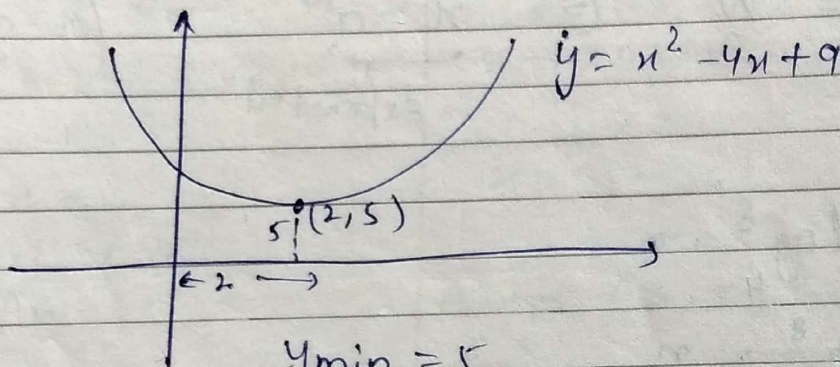 y = x² - 4x + 9
5 (2, 5)
2
ymin = 5